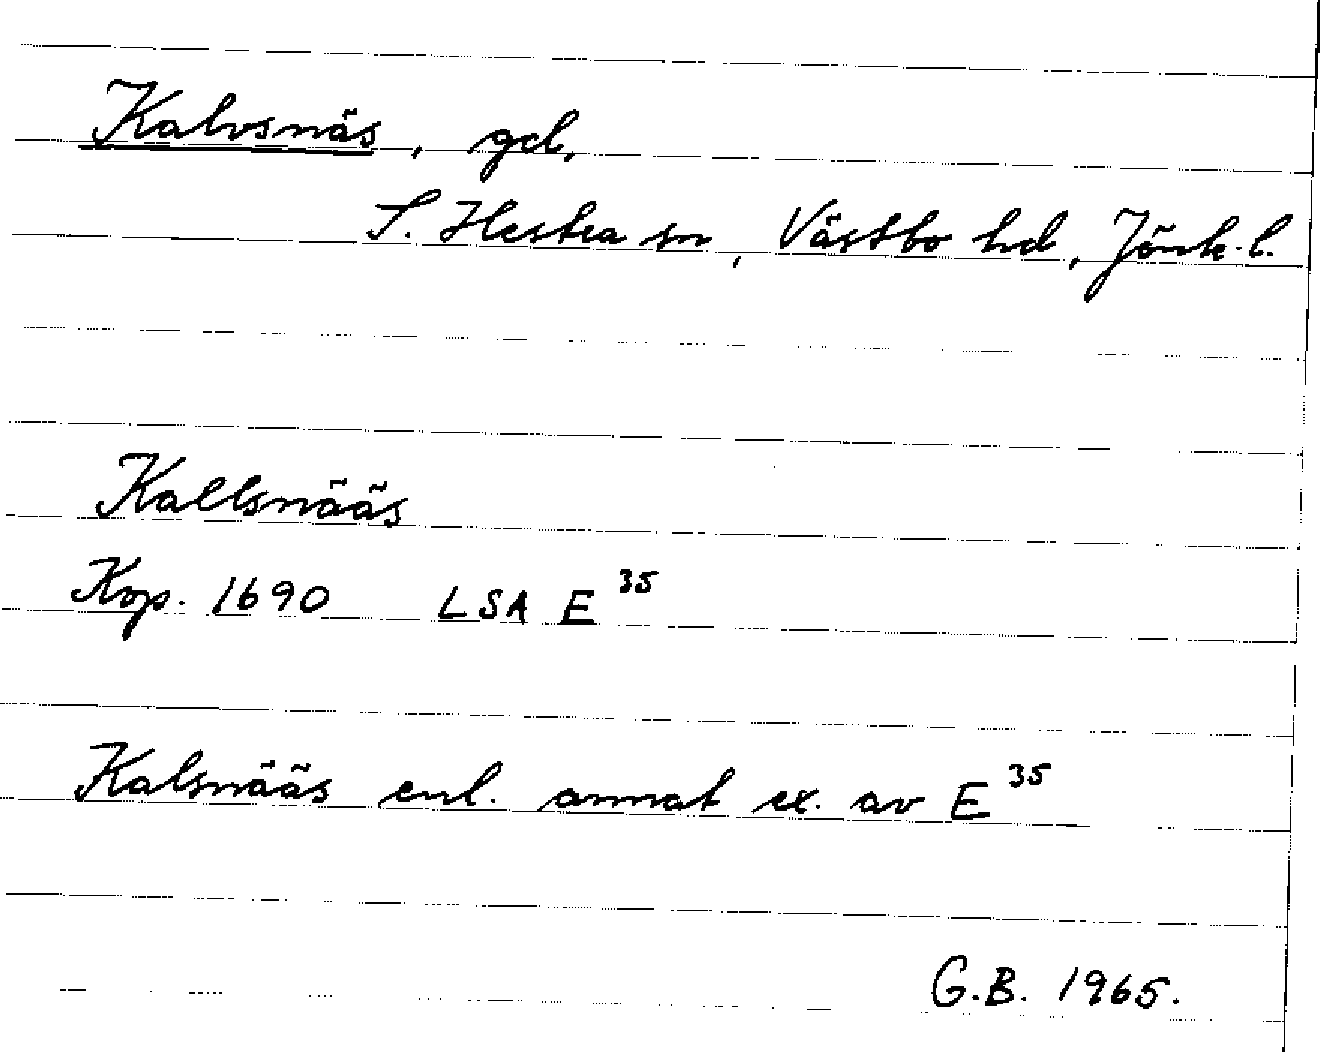 Kalvsnäs, gd,
S. Hestra sn, Västbo hd, Jönk. l.
Kallsnääs
Kop. 1690 LSA E 35
Kalsnääs enl. annat ex. av E 35
G.B. 1965.